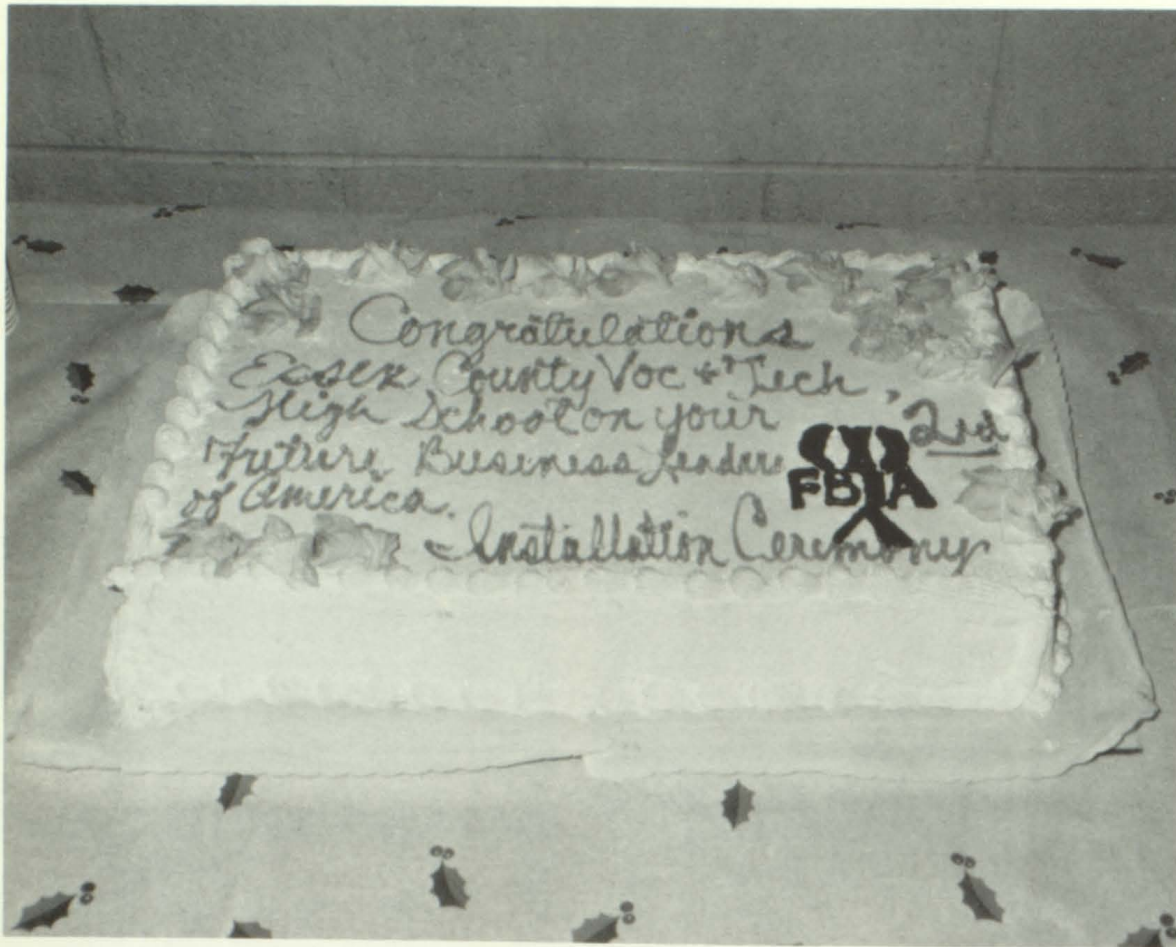 Congratulations
Essex County Voc + Tech,
High School on your 2nd
Future Business Leaders
of America.
FBLA
Installation Ceremony